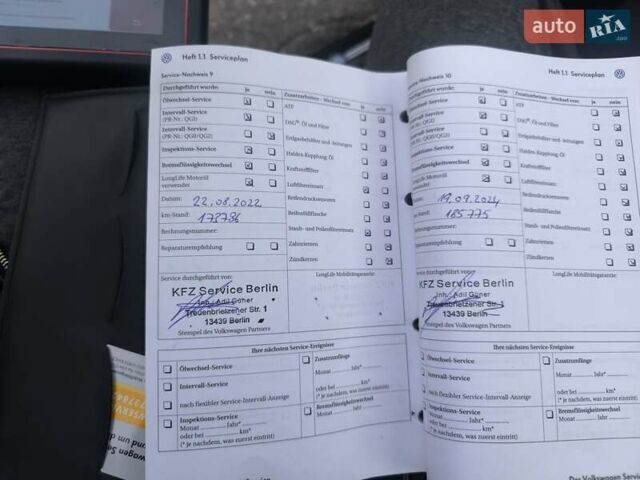 auto RIA .com
Heft 1.1 Serviceplan
Service-Nachweis 9
Durchgeführt wurde: ja nein
Zusatzarbeiten - Wechsel von: ja nein
Ölwechsel-Service
ATF
Intervall-Service
(PR-Nr.: QG1)
DSG®, Öl und Filter
Intervall-Service
(PR-Nr.: QG0/QG2)
Erdgasbehälter und -leitungen
Inspektions-Service
Haldex-Kupplung Öl
Bremsflüssigkeitswechsel
Kraftstofffilter
LongLife Motoröl
verwendet
Luftfiltereinsatz
Datum: 22.08.2022
Reifendruckssensoren
km-Stand: 178786
Reifenfüllflasche
Rechnungsnummer:
Staub- und Pollenfiltereinsatz
Reparaturempfehlung
Zahnriemen
Zündkerzen
Service durchgeführt von:
LongLife Mobilitätsgarantie:
KFZ Service Berlin
Inh. Adil Güner
Treuenbrietzener Str. 1
13439 Berlin
Stempel des Volkswagen Partners
Ihre nächsten Service-Ereignisse
Ölwechsel-Service
Zusatzumfänge
Monat Jahr*
Intervall-Service
oder bei km*
(* je nachdem, was zuerst eintritt)
nach flexibler Service-Intervall-Anzeige
Inspektions-Service
Monat Jahr*
oder bei km*
(* je nachdem, was zuerst eintritt)
Bremsflüssigkeitswechsel
Monat Jahr
Heft 1.1 Serviceplan
Service-Nachweis 10
Durchgeführt wurde: ja nein
Zusatzarbeiten - Wechsel von: ja nein
Ölwechsel-Service
ATF
Intervall-Service
(PR-Nr.: QG1)
DSG®, Öl und Filter
Intervall-Service
(PR-Nr.: QG0/QG2)
Erdgasbehälter und -leitungen
Inspektions-Service
Haldex-Kupplung Öl
Bremsflüssigkeitswechsel
Kraftstofffilter
LongLife Motoröl
verwendet
Luftfiltereinsatz
Datum: 19.09.2024
Reifendruckssensoren
km-Stand: 185775
Reifenfüllflasche
Rechnungsnummer:
Staub- und Pollenfiltereinsatz
Reparaturempfehlung
Zahnriemen
Zündkerzen
Service durchgeführt von:
LongLife Mobilitätsgarantie:
KFZ Service Berlin
Inh. Adil Güner
Treuenbrietzener Str. 1
13439 Berlin
Stempel des Volkswagen Partners
Ihre nächsten Service-Ereignisse
Ölwechsel-Service
Zusatzumfänge
Monat Jahr*
Intervall-Service
oder bei km*
(* je nachdem, was zuerst eintritt)
nach flexibler Service-Intervall-Anzeige
Inspektions-Service
Monat Jahr*
oder bei km*
(* je nachdem, was zuerst eintritt)
Bremsflüssigkeitswechsel
Monat Jahr
Das Volkswagen Service